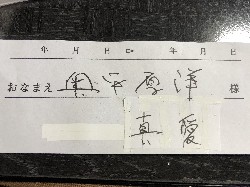 年 月 日 ~ 年 月 日
おなまえ 奥平 原 洋 様
真 愛